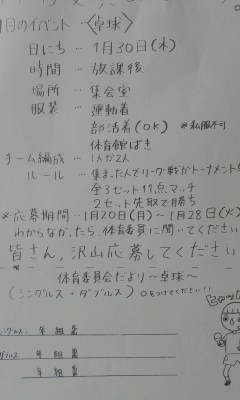 1月のイベント〈卓球〉
日にち - 1月30日(木)
時間 - 放課後
場所 - 集会室
服装 - 運動着
部活着(OK) ※私服不可
体育館ばき
チーム編成 - 1人か2人
ルール - 集まった人でリーグ戦かトーナメント
全3セット11点マッチ
2セット先取で勝ち
※応募期間 - 1月20日(月)〜1月28日(火)
わからなかったら、体育委員に聞いてください
皆さん、沢山応募してください
体育委員会だより〜卓球〜
(シングルス・ダブルス) ○をつけてください!!
年 組 番
年 組 番
年 組 番